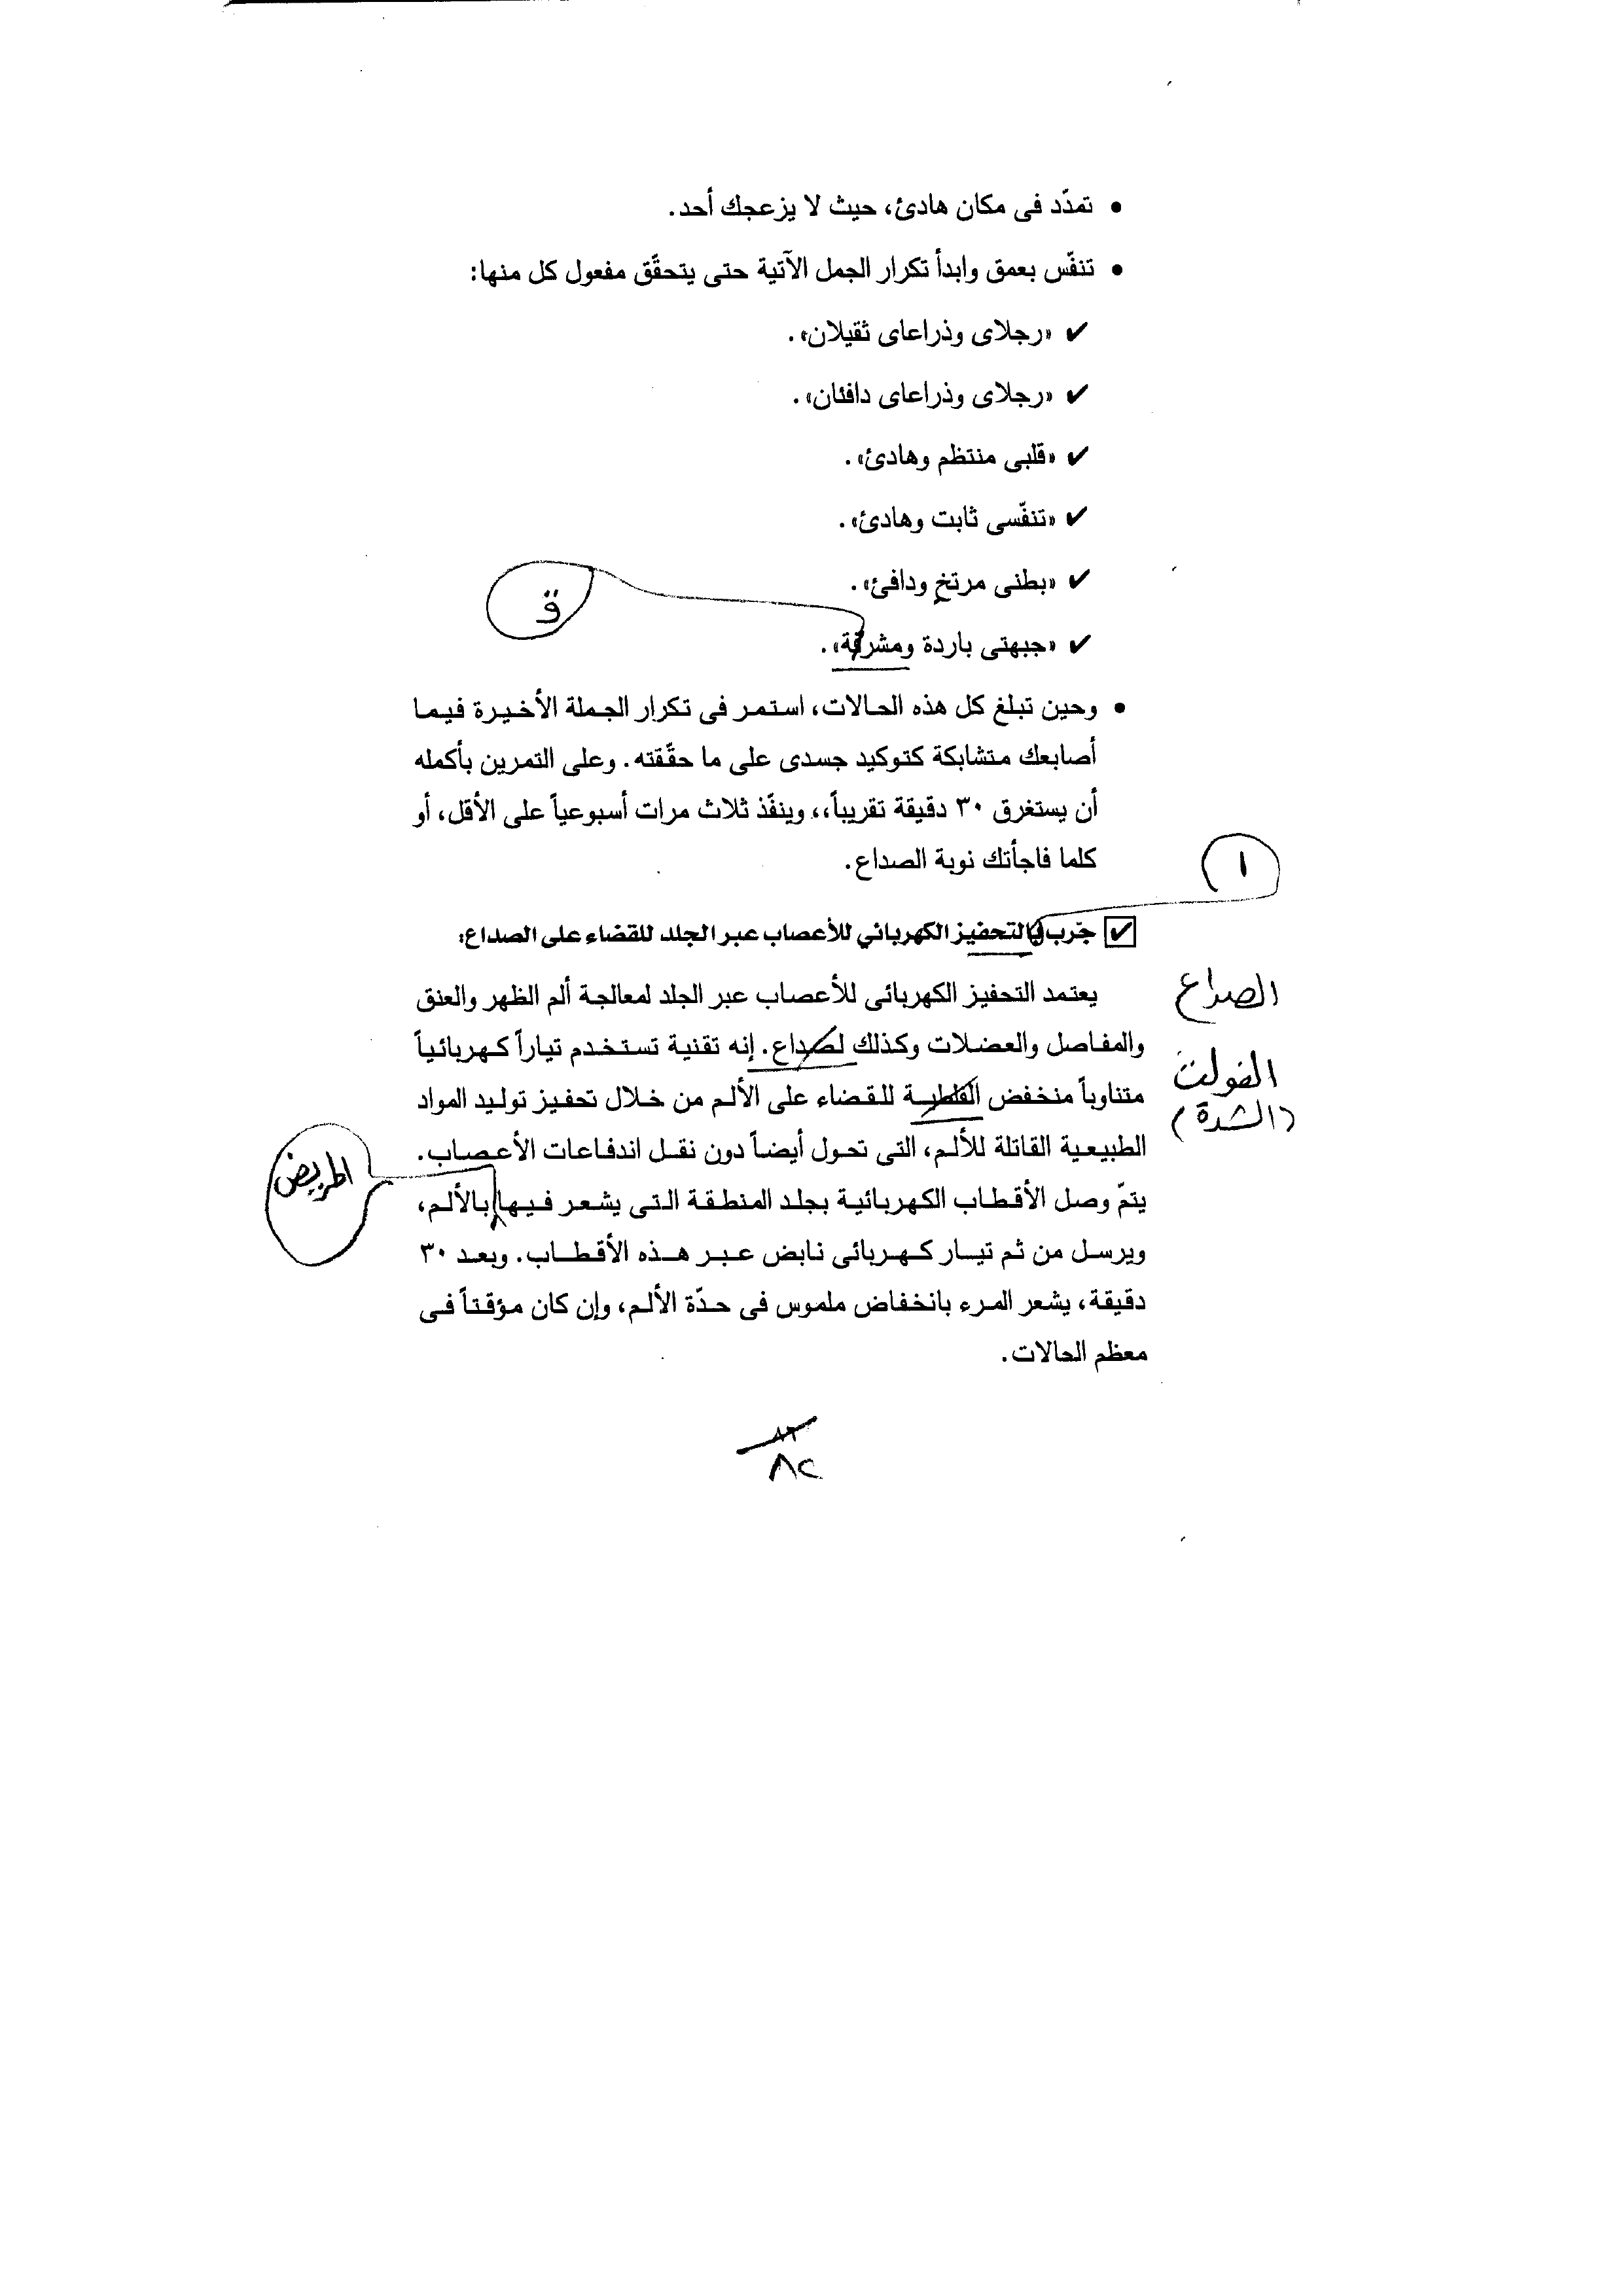 • تمدّد فى مكان هادئ، حيث لا يزعجك أحد.
• تنفّس بعمق وابدأ تكرار الجمل الآتية حتى يتحقّق مفعول كل منها:
✔ «رجلاى وذراعاى ثقيلان».
✔ «رجلاى وذراعاى دافئان».
✔ «قلبى منتظم وهادئ».
✔ «تنفّسى ثابت وهادئ».
✔ «بطنى مرتخٍ ودافئ».
ق
✔ «جبهتى باردة ومشرفة».
• وحين تبلغ كل هذه الحالات، استمر فى تكرار الجملة الأخيرة فيما
أصابعك متشابكة كتوكيد جسدى على ما حقّقته. وعلى التمرين بأكمله
أن يستغرق ٣٠ دقيقة تقريباً،، وينفّذ ثلاث مرات أسبوعياً على الأقل، أو
كلما فاجأتك نوبة الصداع.
ا
✔ جرّب بالتحفيز الكهربائي للأعصاب عبر الجلد للقضاء على الصداع:
يعتمد التحفيز الكهربائى للأعصاب عبر الجلد لمعالجة ألم الظهر والعنق
الصداع
والمفاصل والعضلات وكذلك لصداع. إنه تقنية تستخدم تياراً كهربائياً
الفولت
متناوباً منخفض الفلطية للقضاء على الألم من خلال تحفيز توليد المواد
(الشدة)
الطبيعية القاتلة للألم، التى تحول أيضاً دون نقل اندفاعات الأعصاب.
المريض
يتمّ وصل الأقطاب الكهربائية بجلد المنطقة التى يشعر فيها بالألم،
ويرسل من ثم تيار كهربائى نابض عبر هذه الأقطاب. وبعد ٣٠
دقيقة، يشعر المرء بانخفاض ملموس فى حدّة الألم، وإن كان مؤقتاً فى
معظم الحالات.
٨٢